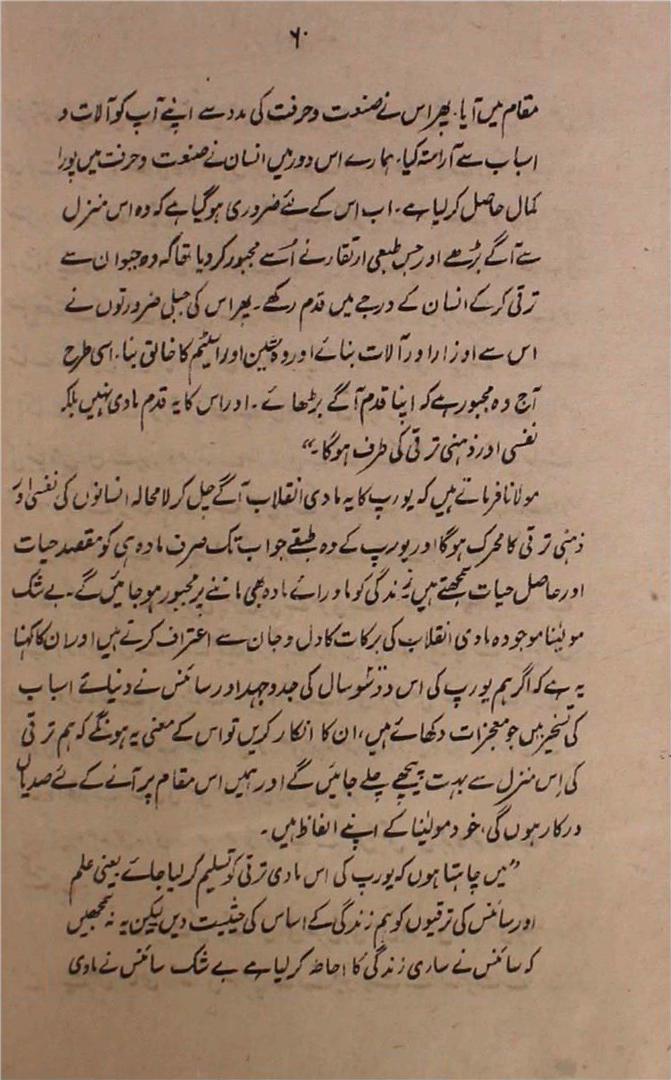 ۶۰
مقام میں آیا۔ پھر اس نے صنعت و حرفت کی مدد سے اپنے آپ کو آلات و
اسباب سے آراستہ کیا۔ ہمارے اس دور میں انسان نے صنعت و حرفت میں پورا
کمال حاصل کر لیا ہے۔ اب اس کے لئے ضروری ہو گیا ہے کہ وہ اس منزل
سے آگے بڑھے اور جس طبعی ارتقار نے اُسے مجبور کر دیا تھا کہ وہ حیوان سے
ترقی کر کے انسان کے درجے میں قدم رکھے۔ پھر اس کی جبلی ضرورتوں نے
اس سے اوزار اور آلات بنائے اور وہ مشین اور اسٹیم کا خالق بنا۔ اسی طرح
آج وہ مجبور ہے کہ اپنا قدم آگے بڑھائے۔ اور اس کا یہ قدم مادی نہیں بلکہ
نفسی اور ذہنی ترقی کی طرف ہوگا۔"
مولانا فرماتے ہیں کہ یورپ کا یہ مادی انقلاب آگے چل کر لا محالہ انسانوں کی نفسی اور
ذہنی ترقی کا محرک ہوگا اور یورپ کے وہ طبقے جو اب تک صرف مادہ ہی کو مقصد حیات
اور حاصل حیات سمجھتے ہیں زندگی کو ماورائے مادہ بھی ماننے پر مجبور ہو جائیں گے۔ بے شک
مولینا موجودہ مادی انقلاب کی برکات کا دل و جان سے اعتراف کرتے ہیں اور ان کا کہنا
یہ ہے کہ اگر ہم یورپ کی اس دو سو سال کی جدوجہد اور سائنس نے دنیائے اسباب
کی تسخیر میں جو معجزات دکھائے ہیں، ان کا انکار کریں تو اس کے معنی یہ ہونگے کہ ہم ترقی
کی اِس منزل سے بہت پیچھے چلے جائیں گے اور ہمیں اس مقام پر آنے کے لئے صدیاں
درکار ہوں گی، خود مولینا کے اپنے الفاظ ہیں۔
"میں چاہتا ہوں کہ یورپ کی اس مادی ترقی کو تسلیم کر لیا جائے یعنی علم
اور سائنس کی ترقیوں کو ہم زندگی کے اساس کی حیثیت دیں لیکن یہ نہ سمجھیں
کہ سائنس نے ساری زندگی کا احاطہ کر لیا ہے بے شک سائنس نے مادی